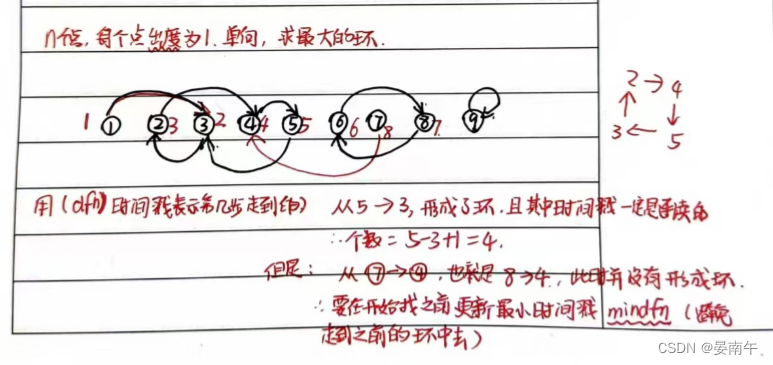 n个点,每个点出度为1.单向,求最大的环.
1 ① ② 3 ③ 2 ④ 4 ⑤ 5 ⑥ 6 ⑦ 8 ⑧ 7 ⑨
2 → 4
↑ ↓
3 ← 5
用(dfn)时间戳表示第几步走到的) 从5→3,形成了环.且其中时间戳一定是连续的
∴个数=5-3+1=4.
但是: 从⑦→④,也就是8→4,此时并没有形成环.
∴要在开始找之前更新最小时间戳 mindfn (避免
走到之前的环中去)
CSDN @晏南午